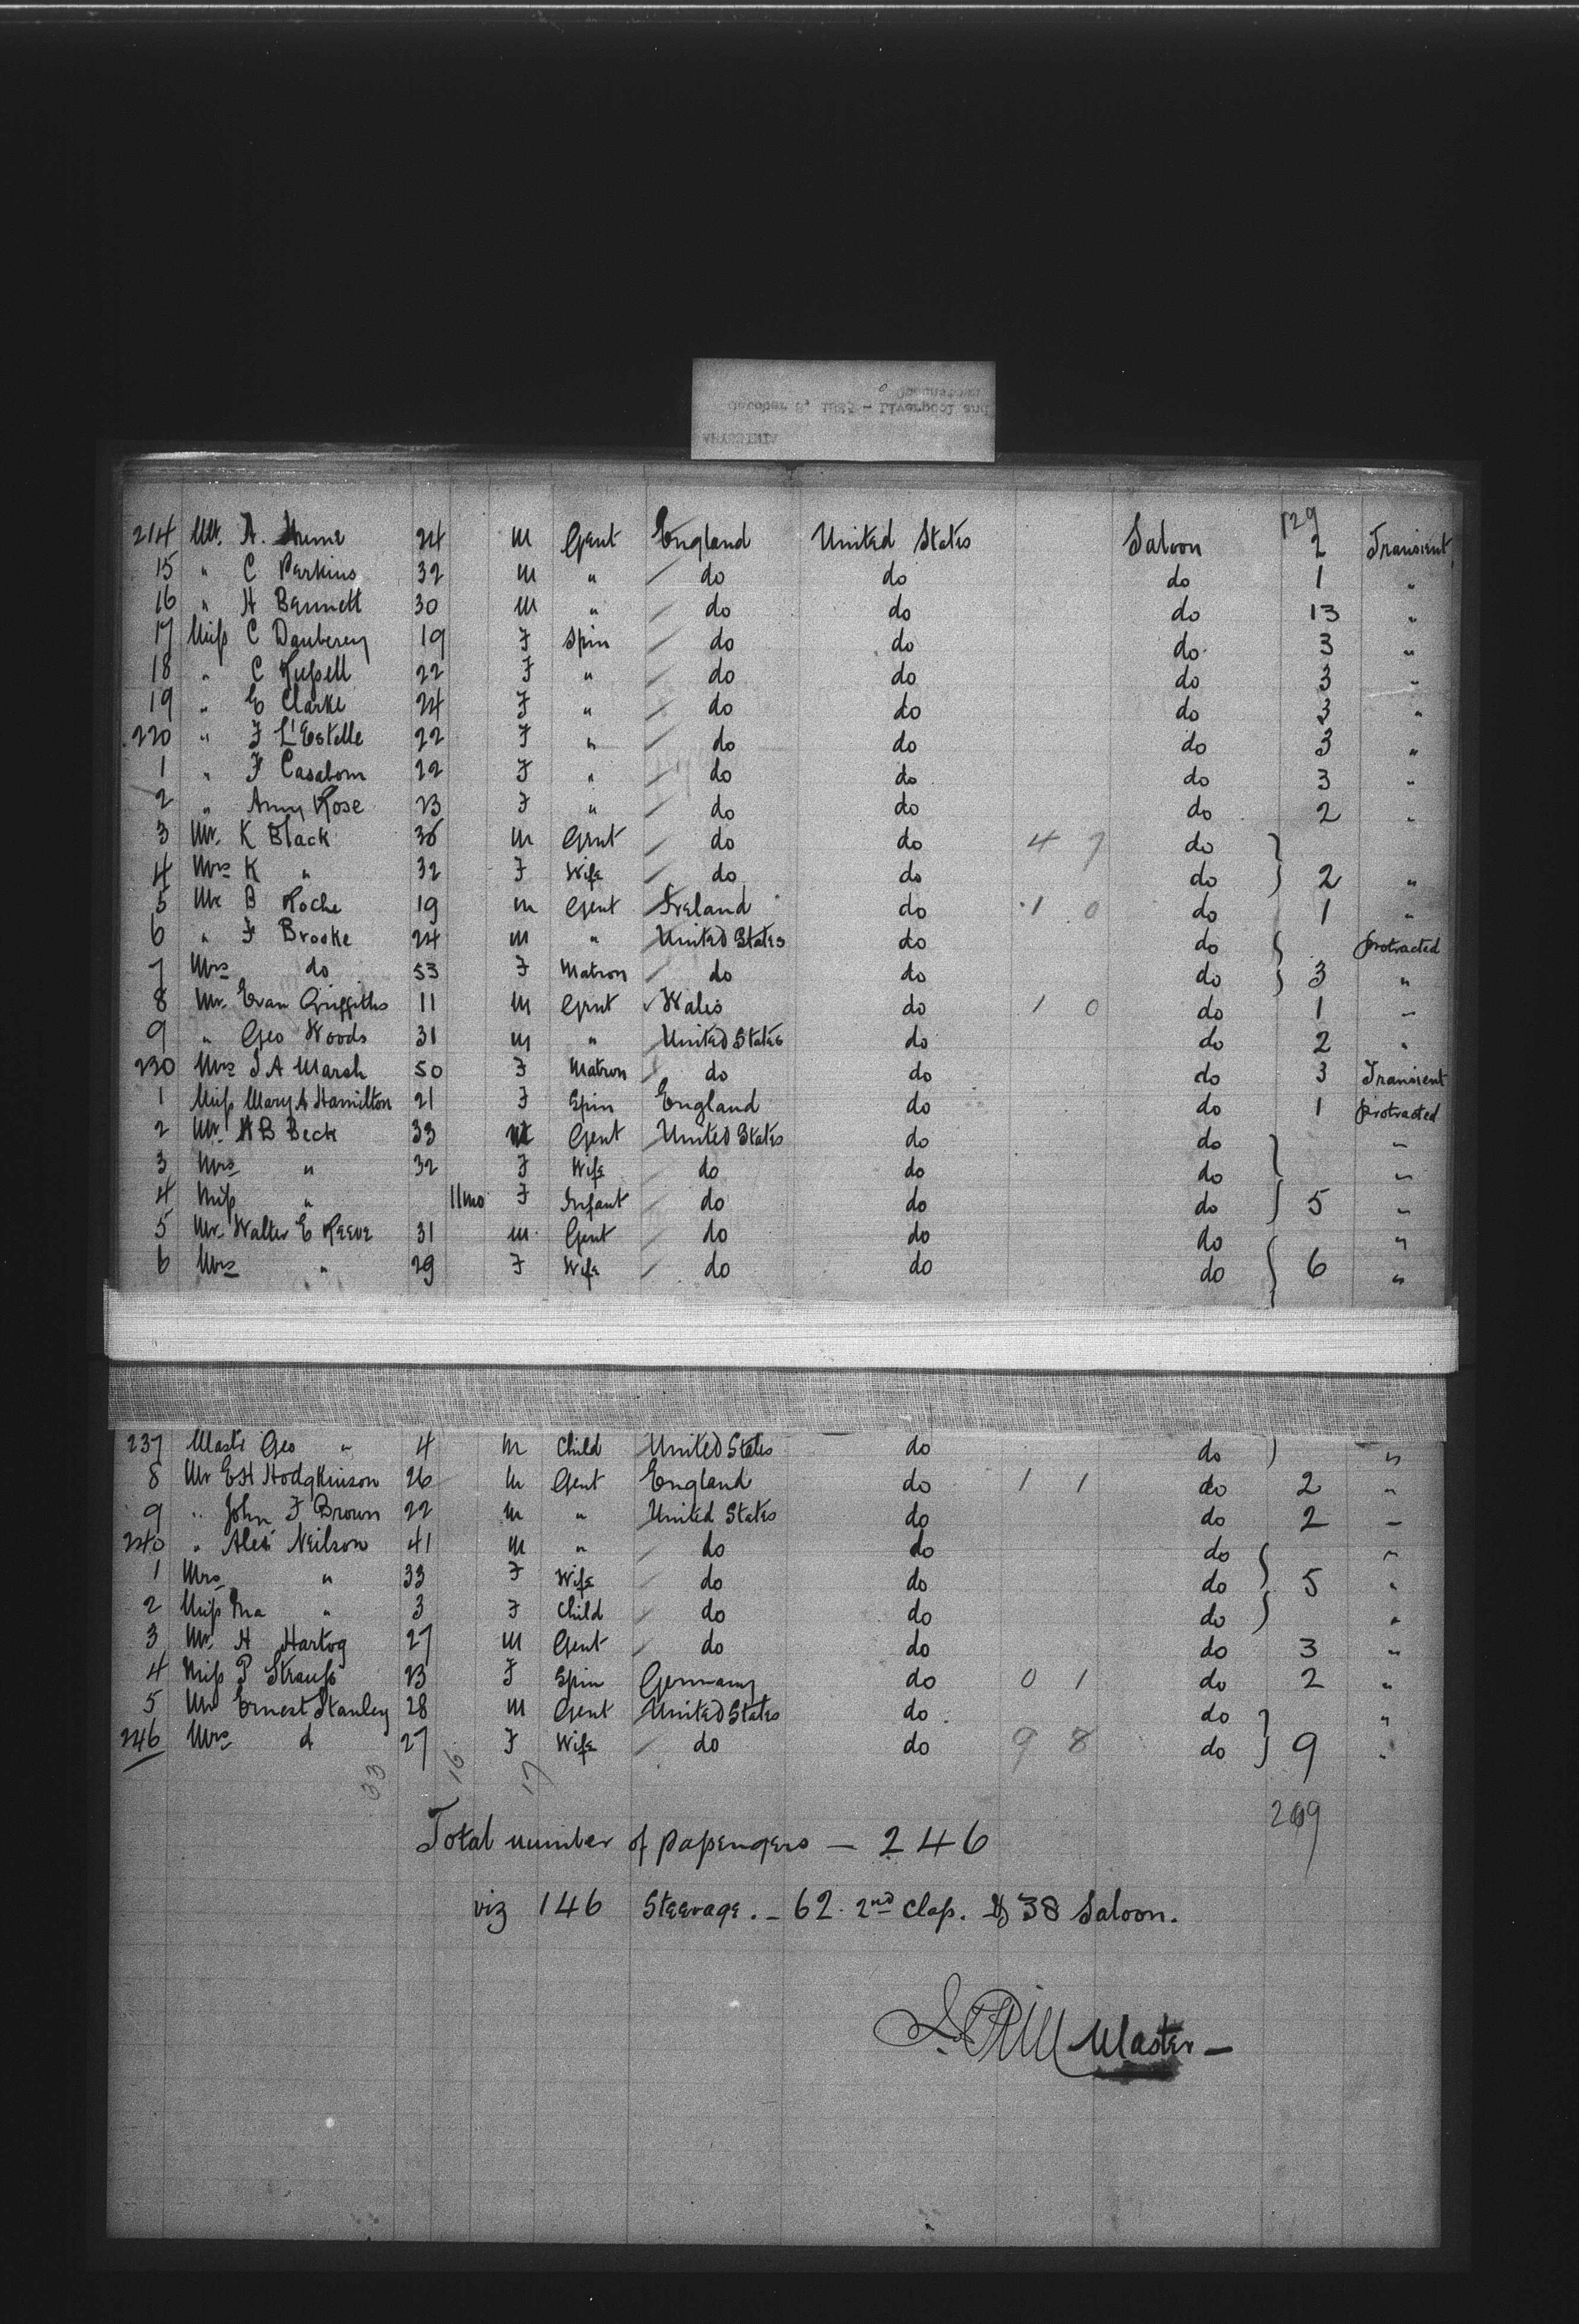 ABYSSINIA
October 8, 188 - Liverpool and
Queenstown
129
214 Mr. A. 24 M Gent England United States Saloon 2 Transient
15 " C Perkins 32 M " / do do do 1 "
16 " H Bennett 30 M " / do do do 13 "
17 Miss C Dauberey 19 F Spin / do do do 3 "
18 " C Russell 22 F " / do do do 3 "
19 " E Clarke 24 F " / do do do 3 "
220 " F L'Estelle 22 F " / do do do 3 "
1 " F 22 F " / do do do 3 "
2 " Amy Rose 23 F " / do do do 2 "
3 Mr. K Black 36 M Gent / do do 4 7 do
4 Mrs K " 32 F Wife / do do do 2 "
5 Mr B Roche 19 M Gent Ireland do 1 0 do 1 "
6 " F Brooke 24 M " United States do do protracted
7 Mrs do 53 F Matron / do do do 3 "
8 Mr. Evan Griffiths 11 M Gent Wales do 1 0 do 1 "
9 " Geo Woods 31 M " United States do do 2 "
230 Mrs J A Marsh 50 F Matron / do do do 3 Transient
1 Miss Mary A Hamilton 21 F Spin England do do 1 protracted
2 Mr. A B Beck 33 M Gent United States do do "
3 Mrs " 32 F Wife / do do do "
4 Miss " 11mo F Infant / do do do 5 "
5 Mr. Walter E Reeve 31 M Gent / do do do "
6 Mrs " 29 F Wife / do do do 6 "
237 Mastr Geo " 4 M Child United States do do "
8 Mr E H Hodgkinson 26 M Gent England do 1 1 do 2 "
9 " John F Brown 22 M " United States do do 2 "
240 " Alex Neilson 41 M " / do do do "
1 Mrs " 33 F Wife / do do do 5 "
2 Miss Ina " 3 F Child / do do do "
3 Mr. H Hartog 27 M Gent / do do do 3 "
4 Miss P Strauss 23 F Spin Germany do 0 1 do 2 "
5 Mr Ernest Stanley 28 M Gent United States do do "
246 Mrs d 27 F Wife / do do 9 8 do 9 "
33 16 17
Total number of passengers — 246
viz 146 Steerage. - 62. 2nd Class. & 38 Saloon.
Master —